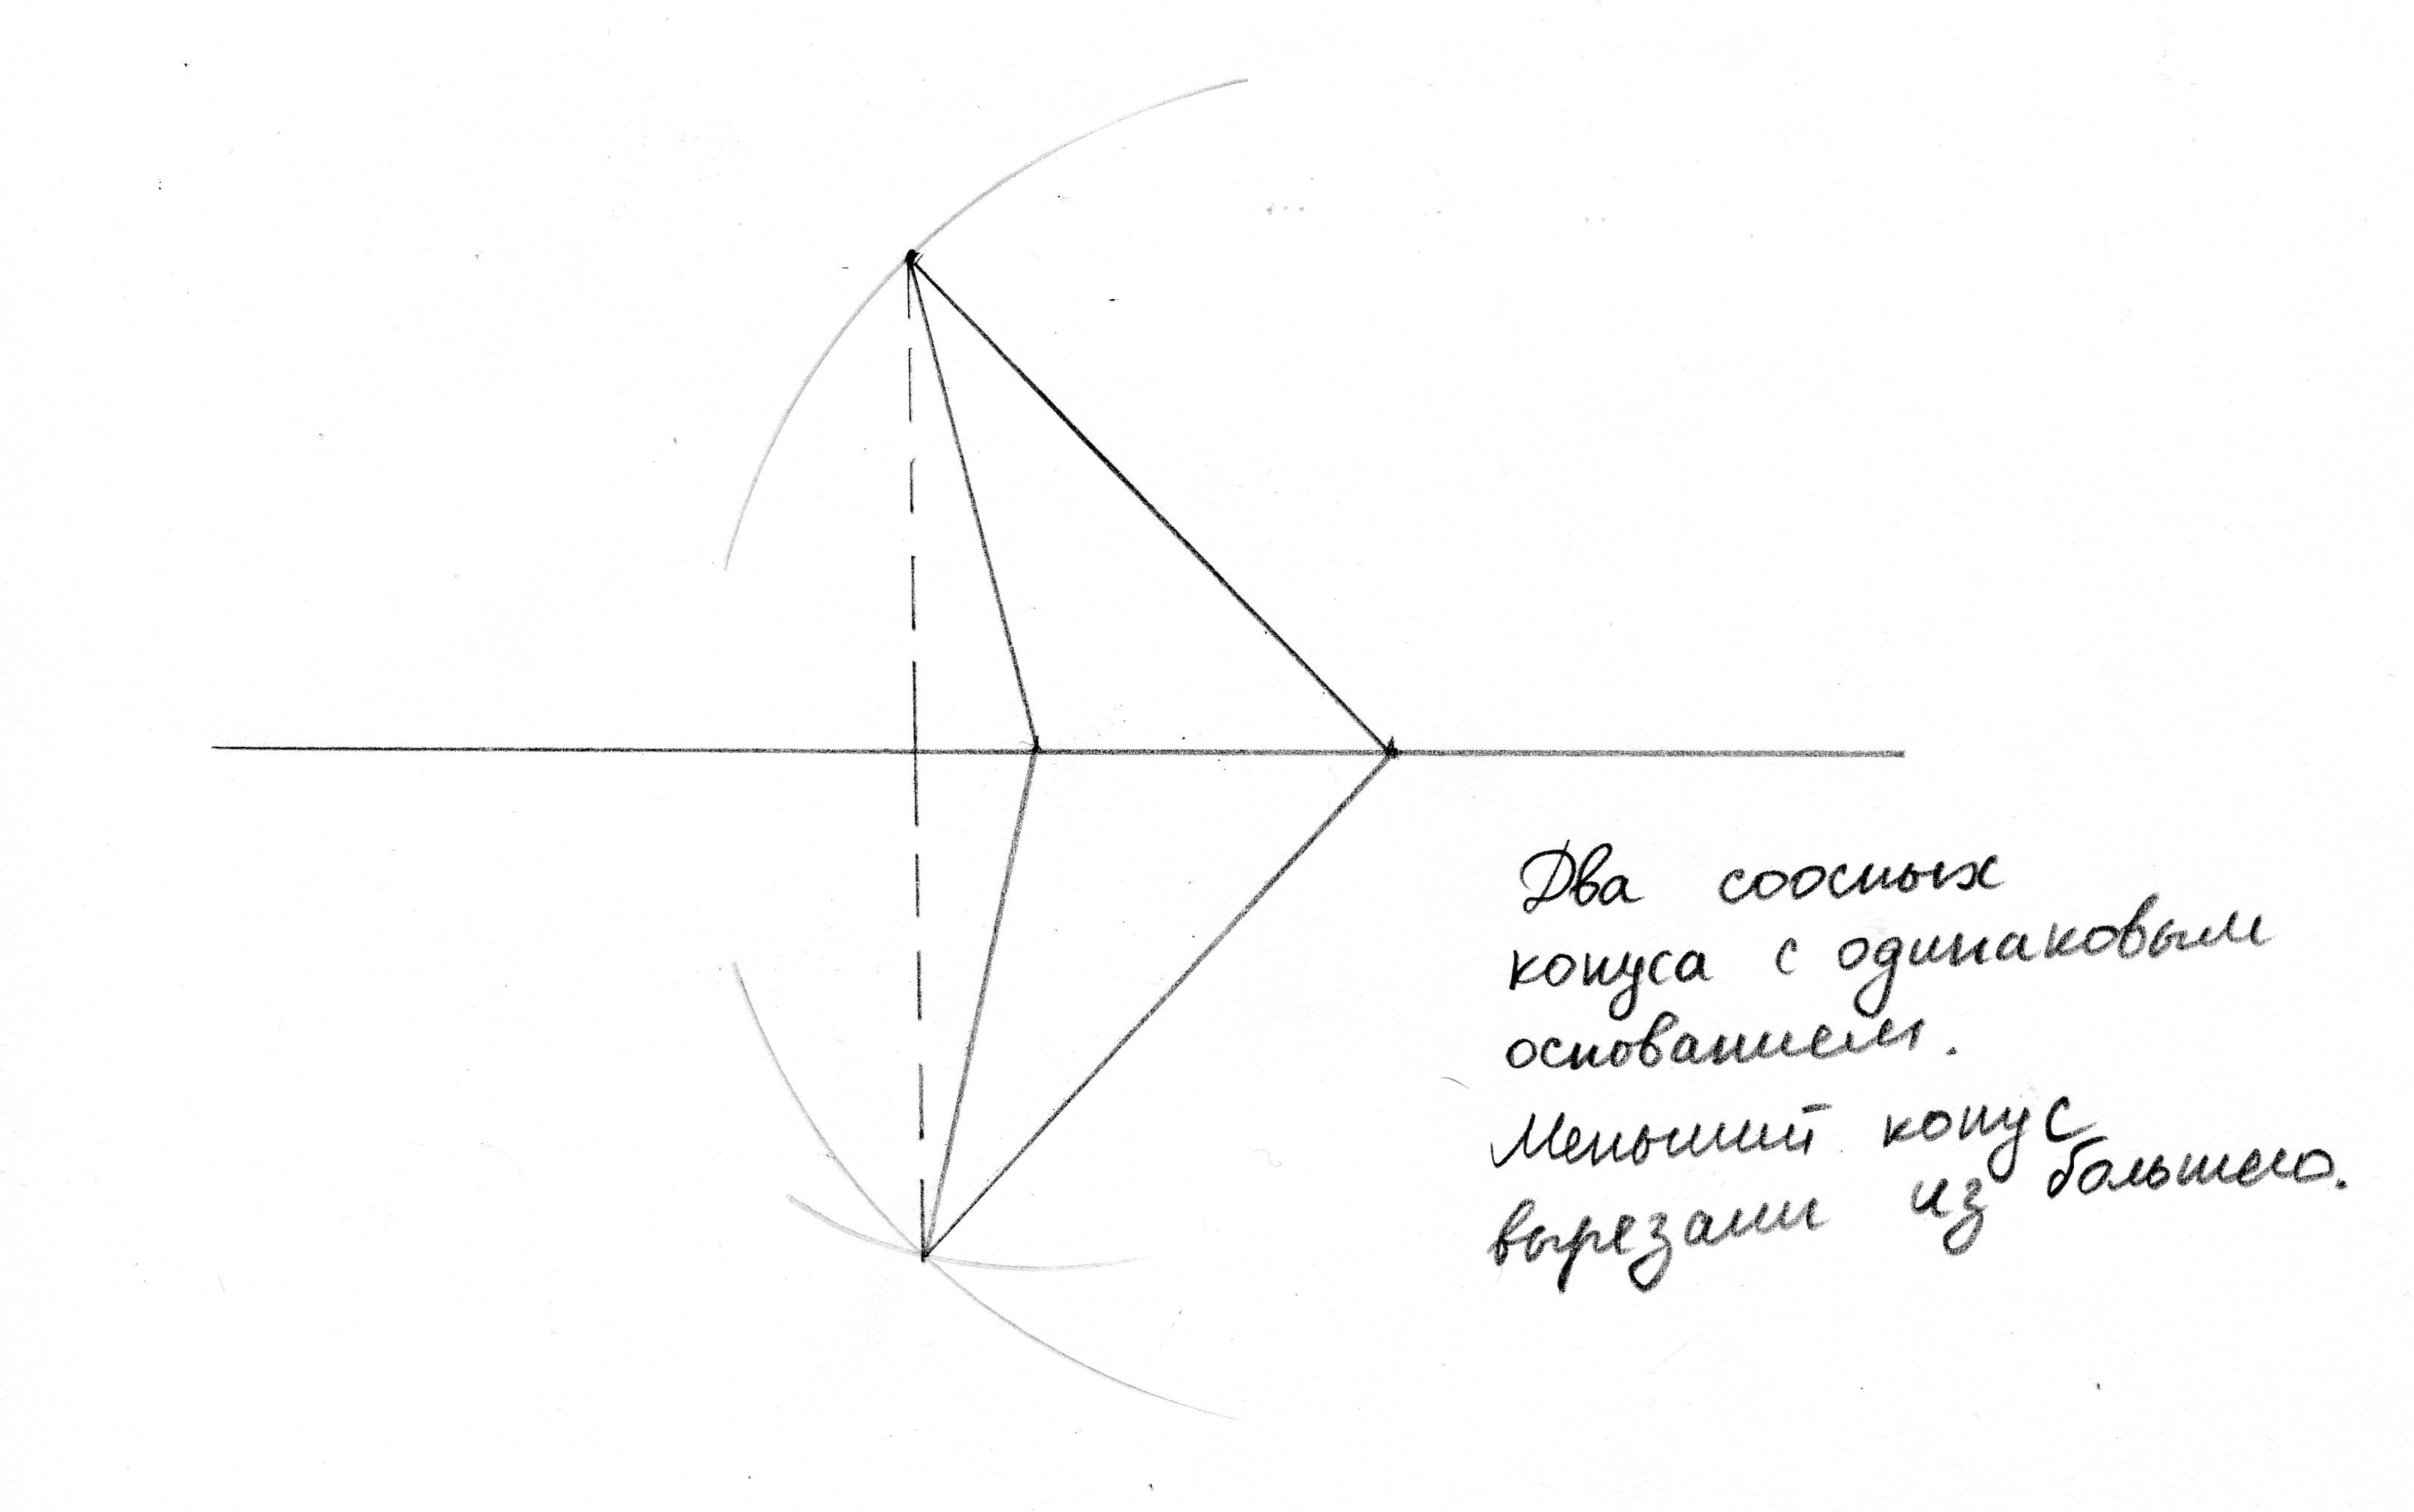 Два соосных
конуса с одинаковым
основанием.
Меньший конус
вырезали из большего.